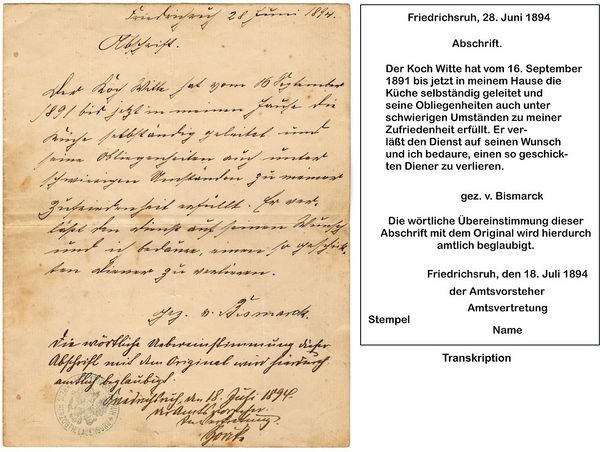 Friedrichsruh 28 Juni 1894.
Abschrift.
Der Koch Witte hat vom 16 September
1891 bis jetzt in meinem Hause die
Küche selbständig geleitet und
seine Obliegenheiten auch unter
schwierigen Umständen zu meiner
Zufriedenheit erfüllt. Er ver-
läßt den Dienst auf seinen Wunsch
und ich bedaure, einen so geschick-
ten Diener zu verlieren.
gez. v. Bismarck.
Die wörtliche Uebereinstimmung dieser
Abschrift mit dem Original wird hierdurch
amtlich beglaubigt.
Friedrichsruh, den 18. Juli 1894.
der Amtsvorsteher.
In Vertretung.
LAUENBURG
Friedrichsruh, 28. Juni 1894
Abschrift.
Der Koch Witte hat vom 16. September
1891 bis jetzt in meinem Hause die
Küche selbständig geleitet und
seine Obliegenheiten auch unter
schwierigen Umständen zu meiner
Zufriedenheit erfüllt. Er ver-
läßt den Dienst auf seinen Wunsch
und ich bedaure, einen so geschick-
ten Diener zu verlieren.
gez. v. Bismarck
Die wörtliche Übereinstimmung dieser
Abschrift mit dem Original wird hierdurch
amtlich beglaubigt.
Friedrichsruh, den 18. Juli 1894
der Amtsvorsteher
Amtsvertretung
Stempel
Name
Transkription